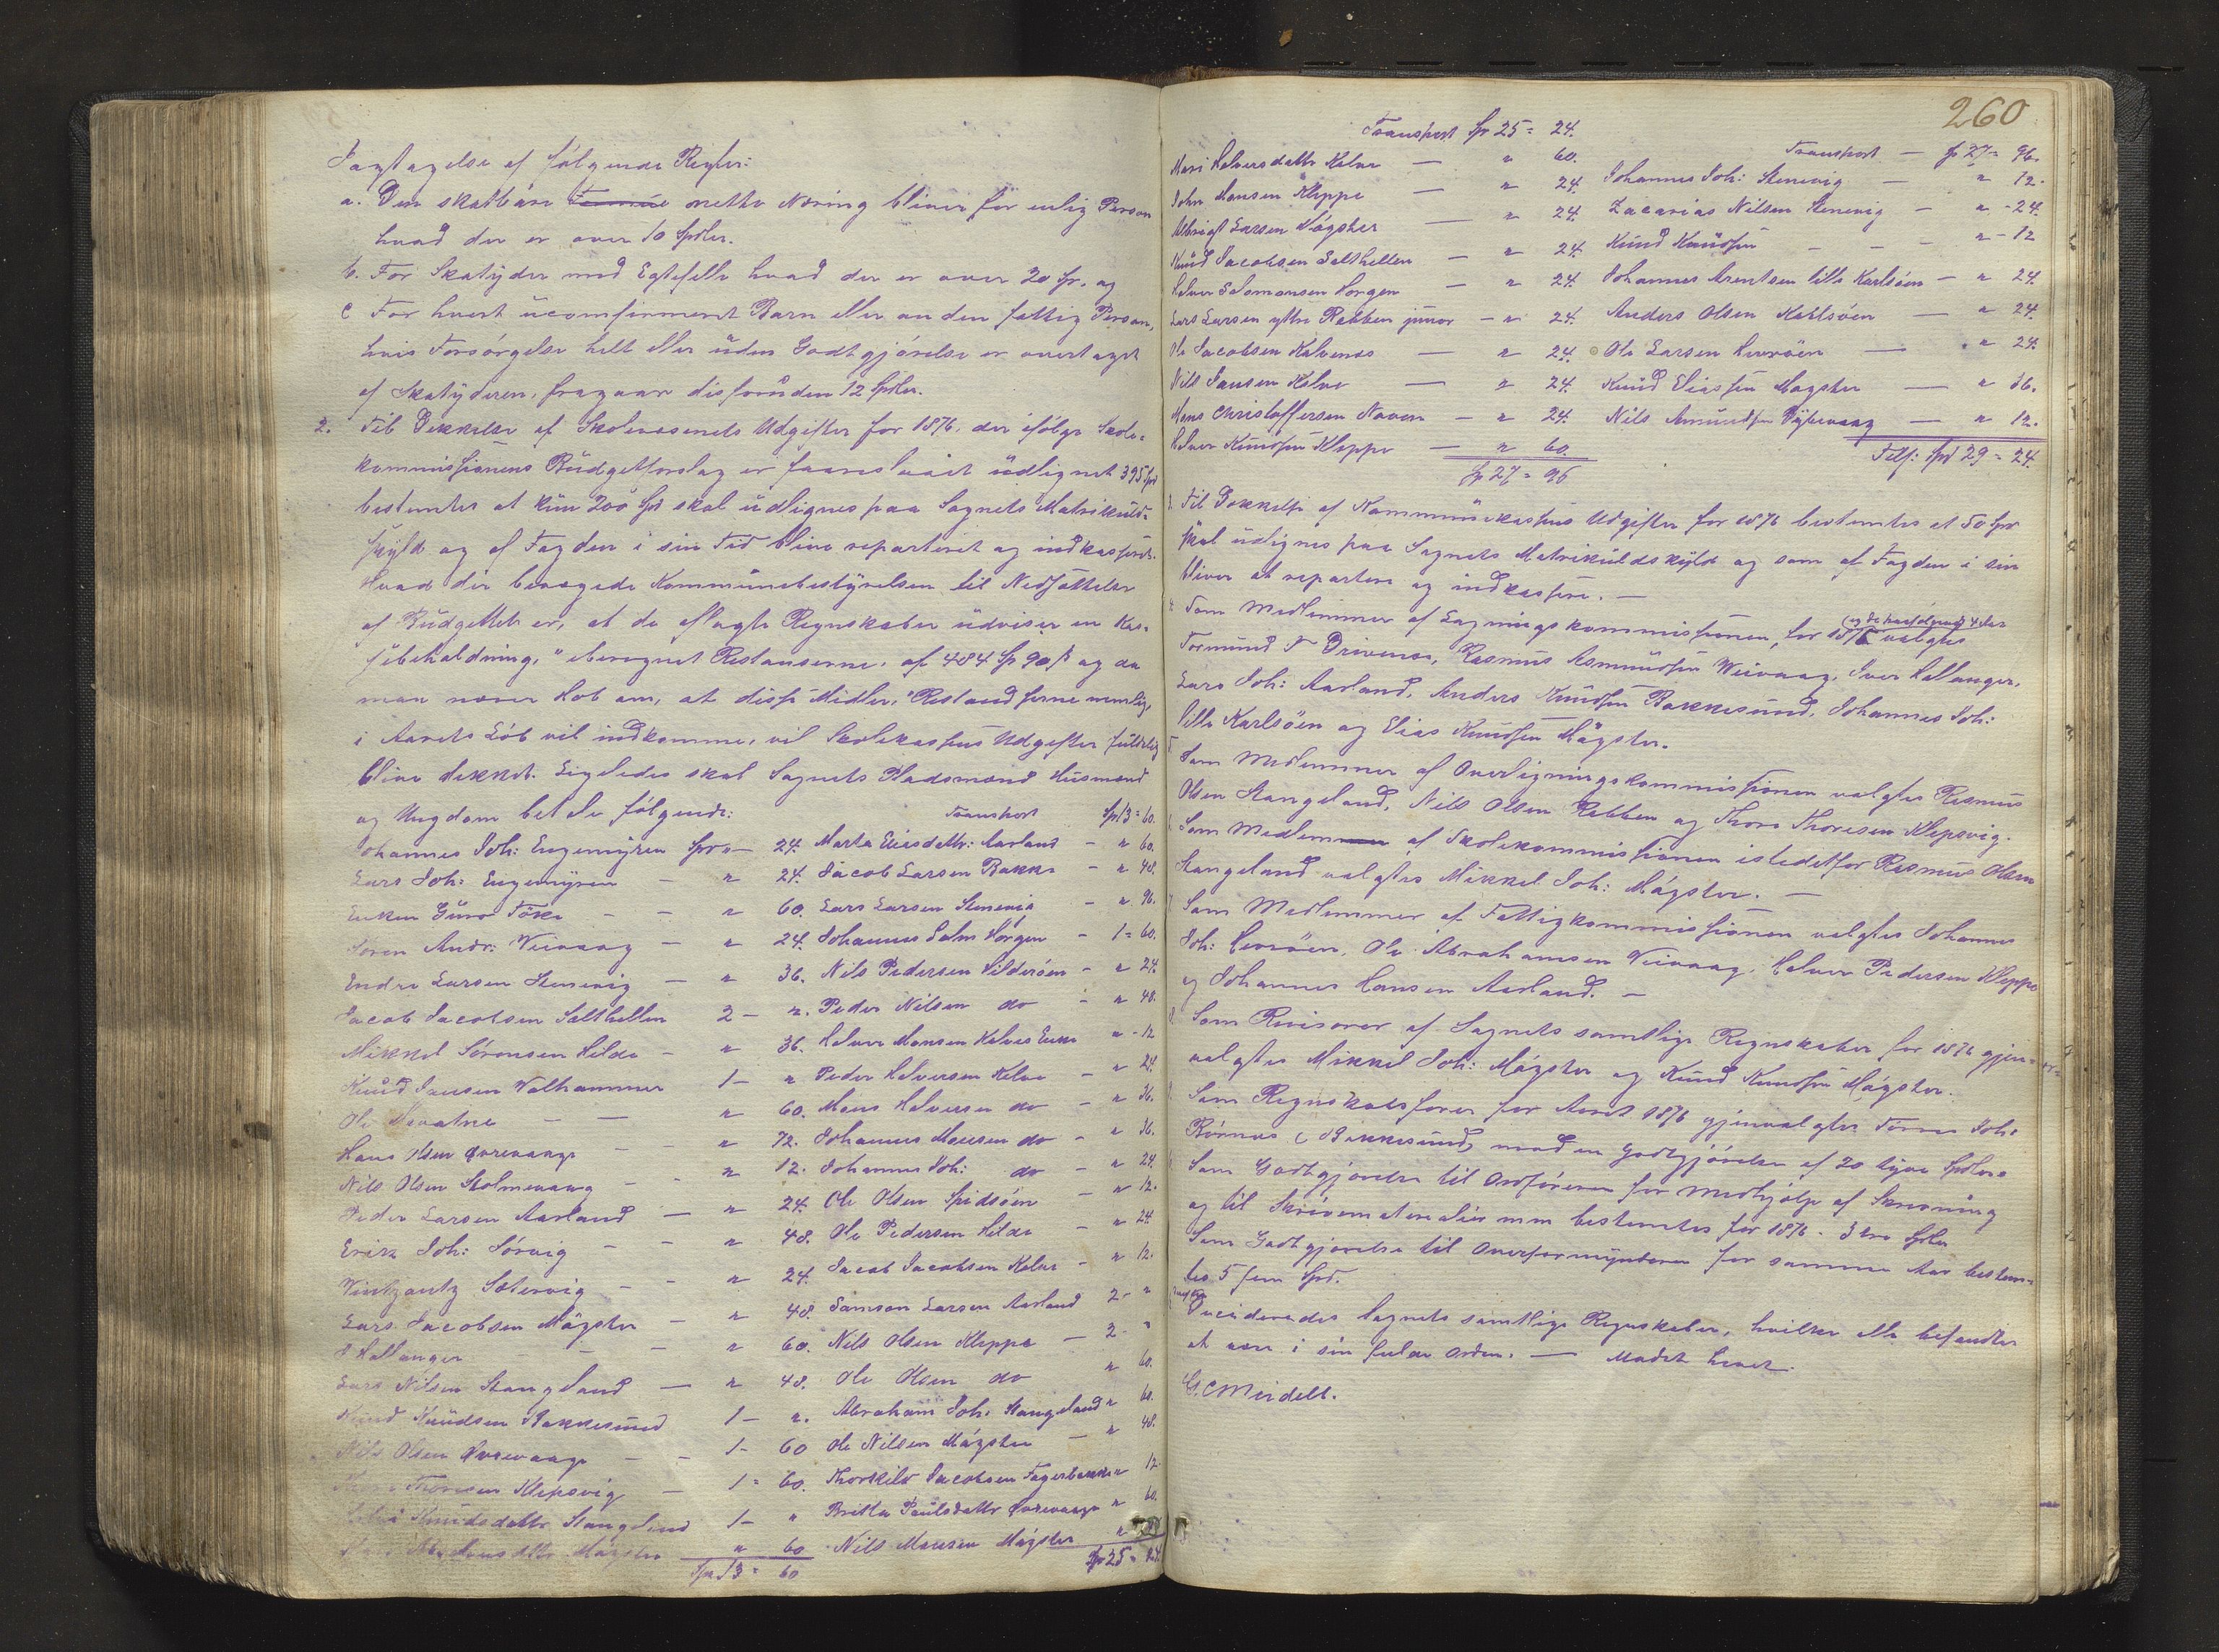 Iagtagelse af følgende Regler:
a. Den skatbare Formue netto Næring bliver for enlig Person
hvad der er over 10 Spdlr.
b. For Skatyder med Egtefelle hvad der er over 20 Sp. og
c For hvert uconfirmeret Barn eller anden fattig Person,
hvis Forsørgelse helt eller uden Godtgjørelse er overtaget
af Skatyderen, fragaar disforuden 12 Spdlr.
2. Til Dekkelse af Skolevæsenets Udgifter for 1876, der ifølge Skole-
kommissionens Budgetforslag er foreslaaet udlignet 395 Spd
bestemtes at kun 200 Spd skal udlignes paa Sognets Matrikuls-
skyld og af Fogden i sin Tid blive reparteret og indkasseret.
Hvad der bevægede Kommunebestyrelsen til Nedsættelse
af Budgettet er, at de aflagte Regnskaber udviser en Kas-
sebeholdning, iberegnet Restanserne, af 484 Sp 90 s og da
man nærer Hob om, at disse Midler, Restandserne nemlig,
i Aarets Løb vil indkomme, vil Skolekassens Udgifter fuldelig
blive dekket. Ligeledes skal Sognets Pladsmænd Husmænd
og Ungdom betale følgende:
Johannes Joh: Engemyren Spd " — 24.
Lars Joh: Engemyren — " 24.
Enken Guro Føke — — " 60.
Søren Andr: Veivaag — " 24.
Endre Larsen Stenevig — " 36.
Jacob Jacobsen Salthellen 2 — ".
Mikkel Sørensen Hilde — " 36.
Knud Jansen Valhammer 1 — "
Ole Nevatne — — " 60.
Hans Olsen Qvrevaage — " 72.
Nils Olsen Stolmevaag — — " 12.
Peder Larsen Aarland — " 24.
Erik Joh: Sørvig — — " 48.
Vintzantz Sætervig — — " 24.
Lars Jacobsen Møgster — " 48.
I Hallanger — — — " 60.
Lars Nilsen Stangeland — " 48.
Knud Knudsen Bakkesund 1 — ".
Nils Olsen Qvrevaage — — 1 — 60
Thore Thoresen Klepsvig — 1 = 60.
Knudsdatter Stangeland 1 — "
Møgster " 60
Spd 13 = 60
Transport Spd 13 = 60.
Marta Eliesdattr: Aarland — " 60.
Jacob Larsen Bakke — " 48.
Lars Larsen Stenevig — " 96.
Johannes Salm Horgen — 1 = 60.
Nils Pedersen Hildesøen — " 24.
Peder Nilsen do — " 48.
Halvor Monsen Kalves Enke " — 12
Peder Halversen Kalve — " 24.
Mons Halversen do — " 36.
Johannes Monsen do — " 36.
Johannes Joh: do — " 24.
Ole Olsen Spidsøen — " 12.
Ole Pedersen Hilde — " 24.
Jacob Jacobsen Kalve — " 12.
Samson Larsen Aarland 2 — "
Nils Olsen Kleppe — 2 — "
Ole Olsen do " 60.
Abraham Joh: Stangeland " 60.
Ole Nilsen Møgster — " 48.
Thorkild Jacobsen Fagerbakke " 12.
Britta Paulsdattr Qvrevaage " 60.
Nils Monsen Møgster "
Sp 25 = 24.
260
Transport Sp 25 = 24.
Mari Halversdattr Kalve — " 60.
John Hansen Kleppe — " 24.
Albrigt Larsen Møgster — " 24.
Knud Jacobsen Salthellen — " 24.
Halvor Salomonsen Horgen — " 24.
Lars Larsen yttre Rabben junor — " 24.
Ole Jacobsen Kalvenes — " 24.
Nils Jansen Kalve — " 24.
Mons Christoffersen Noven — " 24.
Halvor Knudsen Kleppe — " 60.
Sp 27 = 96
Transport — Sp 27 = 96.
Johannes Joh: Stenevig — " 12.
Zacarias Nilsen Stenevig — " — 24.
Knud Knudsen — — — " — 12
Johannes Arentsen lille Karlsøen — " 24.
Anders Olsen Kahlsøen — " 24.
Ole Larsen Hevrøen — " 24.
Knud Eliassen Møgster — " 36.
Nils Amundsen Dybevaag — " 12.
Tils: Spd 29 = 24.
3. Til Dekkelse af Kommunekassens Udgifter for 1876 bestemtes at 50 Spd
skal udlignes paa Sognets Matrikuldskyld og som af Fogden i sin
bliver at repartere og indkassere. —
4. Som Medlemmer af Ligningskommissionen for 1876 (og de paafølgende 4 Aar valgtes
Tormund T Drivenes, Rasmus Asmundsen Veivaag, Iver Hallanger,
Lars Joh: Aarland, Anders Knudsen Bakkesund, Johannes Joh:
lille Karlsøen og Elias Knudsen Møgster.
5. Som Medlemmer af Overligningskommissionen valgtes Rasmus
Olsen Stangeland, Nils Olsen Rabben og Thore Thoresen Klepsvig.
6. Som Medlem af Skolekommissionen istedetfor Rasmus Olsen
Stangeland valgtes Mikkel Joh: Møgster. —
7. Som Medlemmer af Fattigkommissionen valgtes Johannes
Joh: Hevrøen, Ole Abrahamsen Veivaag, Halvor Pedersen Kleppe
og Johannes Hansen Aarland. —
8. Som Revisorer af Sognets samtlige Regnskaber for 1876 gjen-
valgtes Mikkel Joh: Møgster og Knud Knudsen Møgster.
9. Som Regnskabsfører for Aaret 1876 gjenvalgtes Tormo Joh:
Børnes (Bekkesund) med en Godtgjørelse af 20 tyve Spdlr.
Som Godtgjørelse til Ordføreren for Medhjælp af Skrivning
og til Skrivematerialier mm bestemtes for 1876 - 3 tre Spdlr
Som Godtgjørelse til Overformynderen for samme Aar bestem-
tes 5 fem Spd.
Decideredes Sognets samtlige Regnskaber, hvilke alle befandtes
at være i sin fulde Orden. — Mødet hævet.
G. C Meidell.